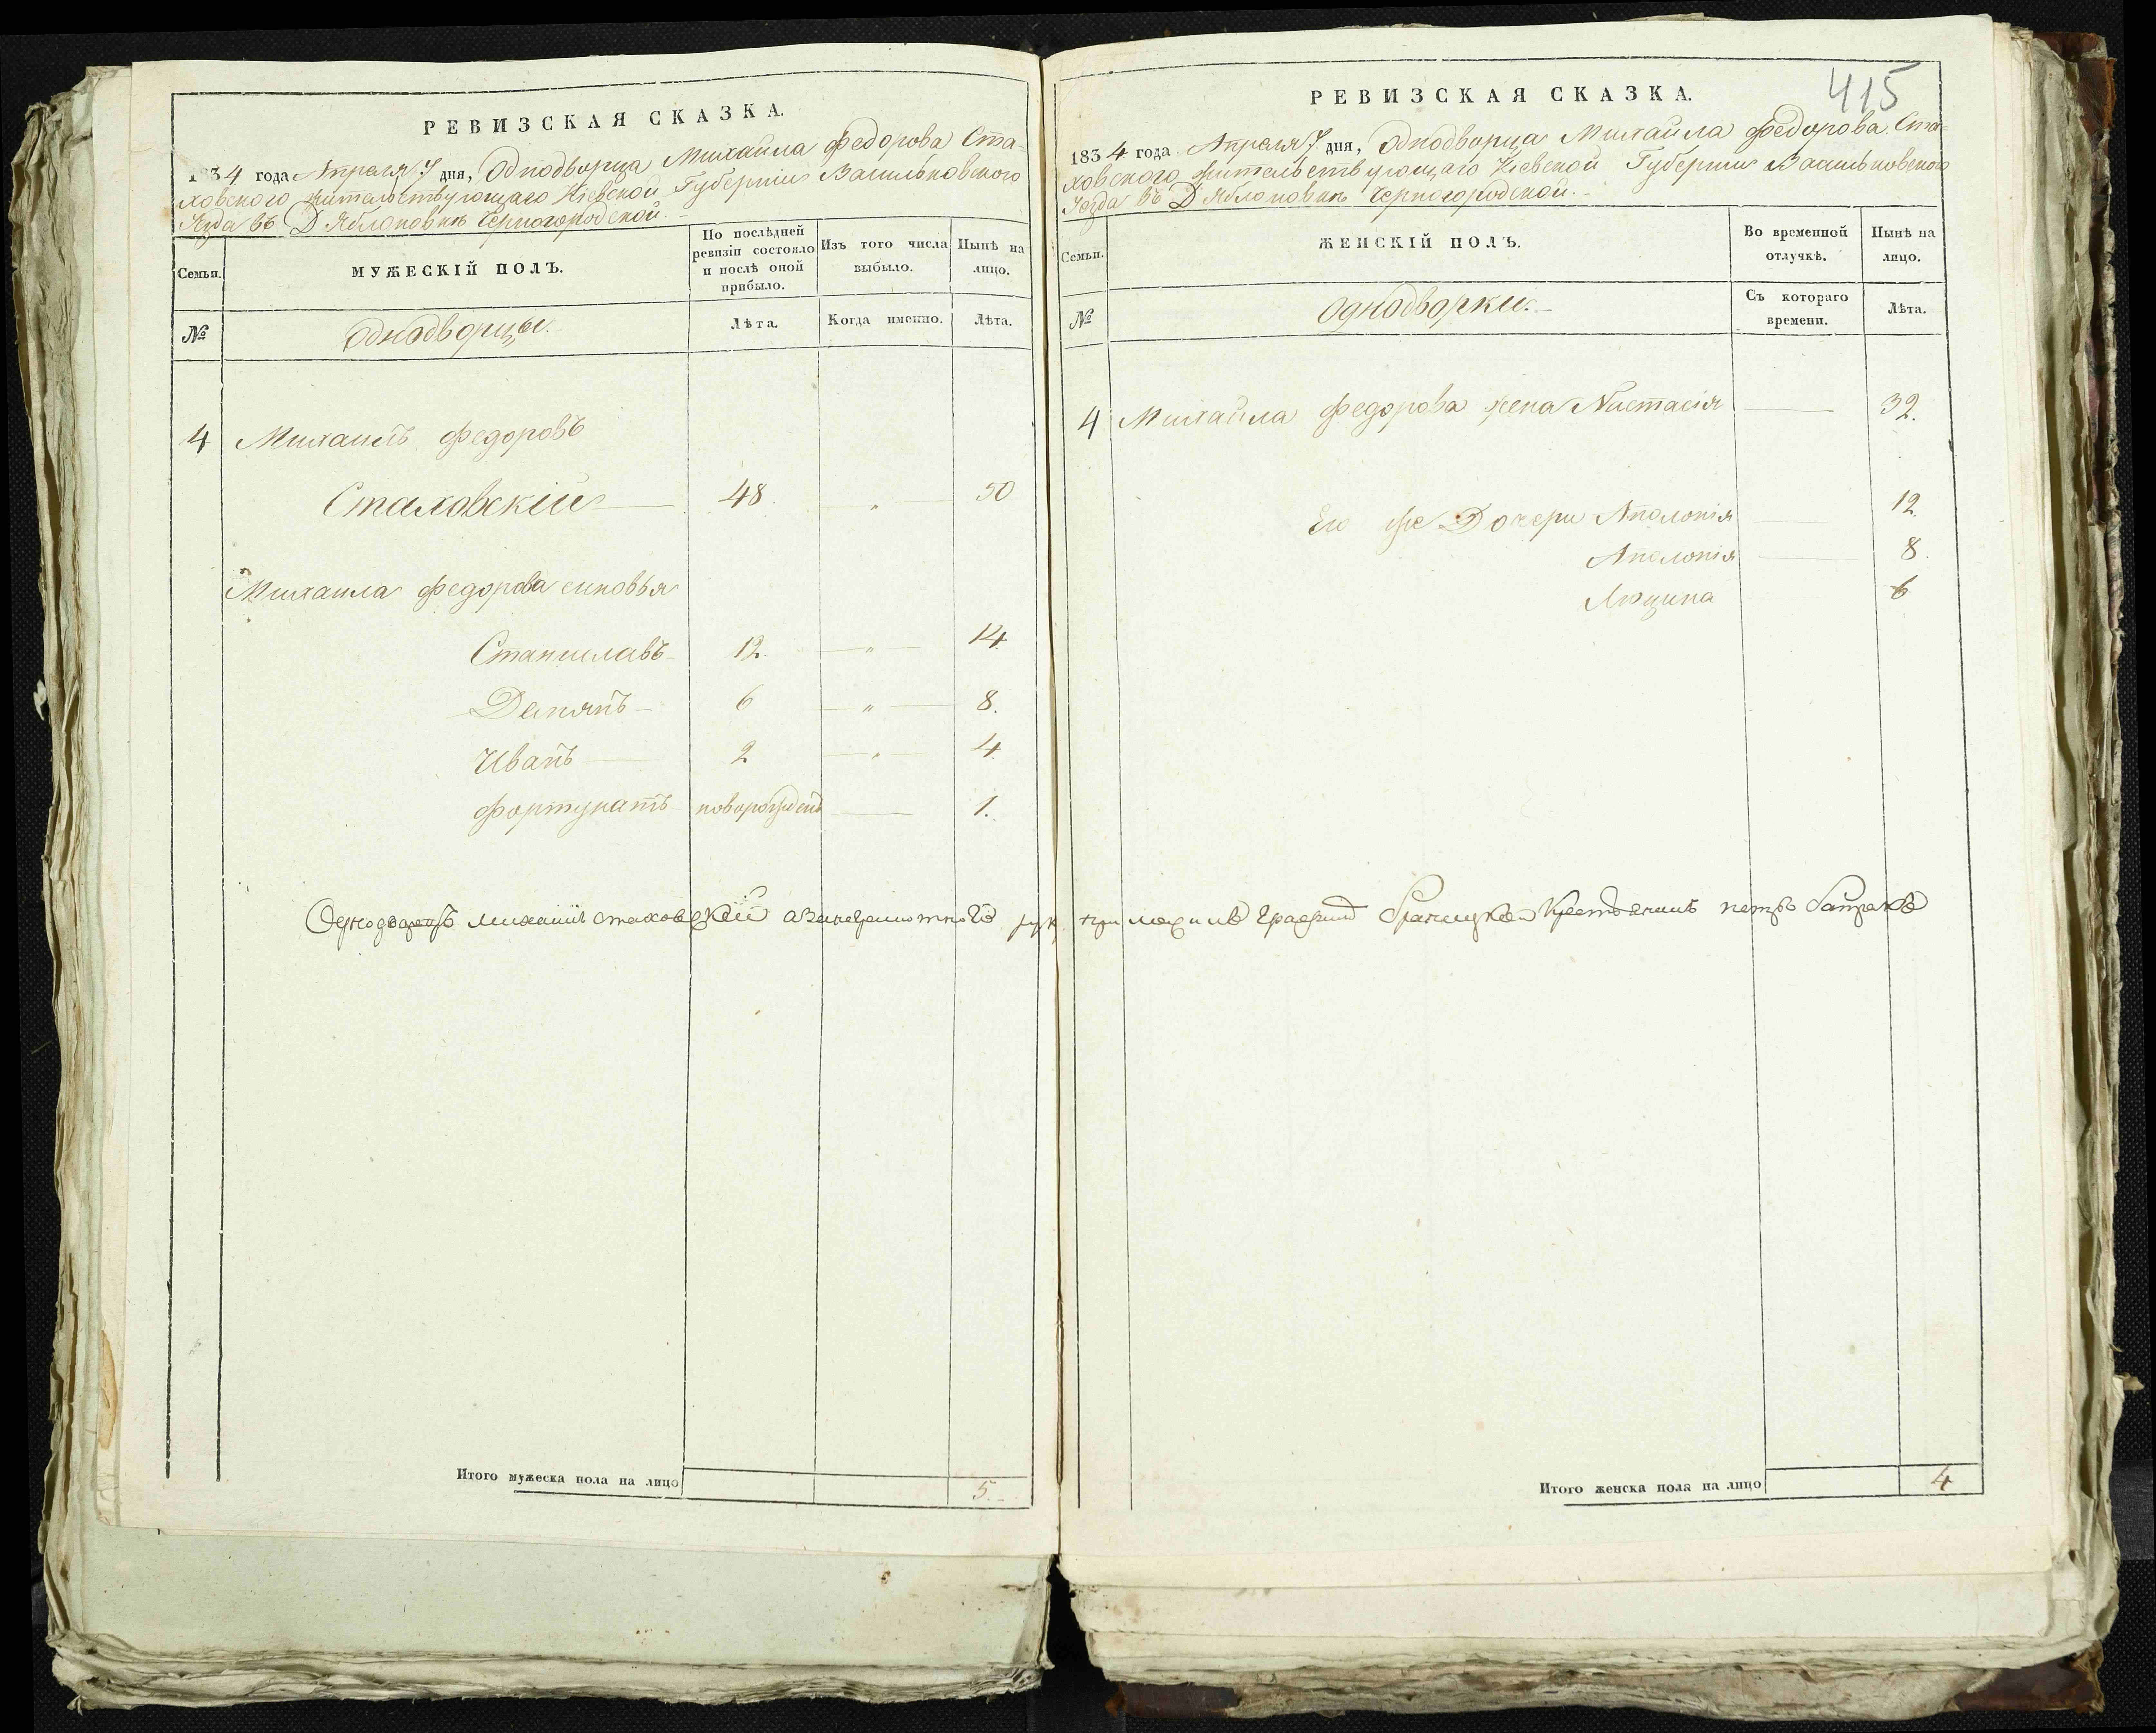 РЕВИЗСКАЯ СКАЗКА.
1834 года Апреля 7 дня, Однодворца Михайла Федорова Ста-
ховского жительствующаго Кіевской Губерніи Васильковского
Уезда въ Д Яблоновкѣ Черногородской.
Семьи.
МУЖЕСКІЙ ПОЛЪ.
По послѣдней ревизіи состояло и послѣ оной прибыло.
Изъ того числа выбыло.
Нынѣ на лицо.
№
Однодворцы.
Лѣта.
Когда именно.
Лѣта.
4 Михаилъ Федоровъ
Стаховскій 48 " 50
Михаила Федорова сыновья
Станиславъ 12. " 14.
Демянъ 6 " 8.
Иванъ 2 " 4.
Фортунатъ новорожденъ 1.
Итого мужеска пола на лицо 5.
415
РЕВИЗСКАЯ СКАЗКА.
1834 года Апреля 7. дня, Однодворца Михайла Федорова Ста-
ховского жительствующаго Кіевской Губерніи Васильковского
Уезда въ Д Яблоновкѣ Черногородской.
Семьи.
ЖЕНСКІЙ ПОЛЪ.
Во временной отлучкѣ.
Нынѣ на лицо.
№
Однодворки.
Съ котораго времени.
Лѣта.
4 Михайла Федорова жена Настасія 32.
Его же Дочери Аполонія 12.
Аполонія 8.
Люцина 6
Однодворецъ Михаилъ Стаховский а за неграмотного крестьянинъ петръ
Итого женска пола на лицо 4